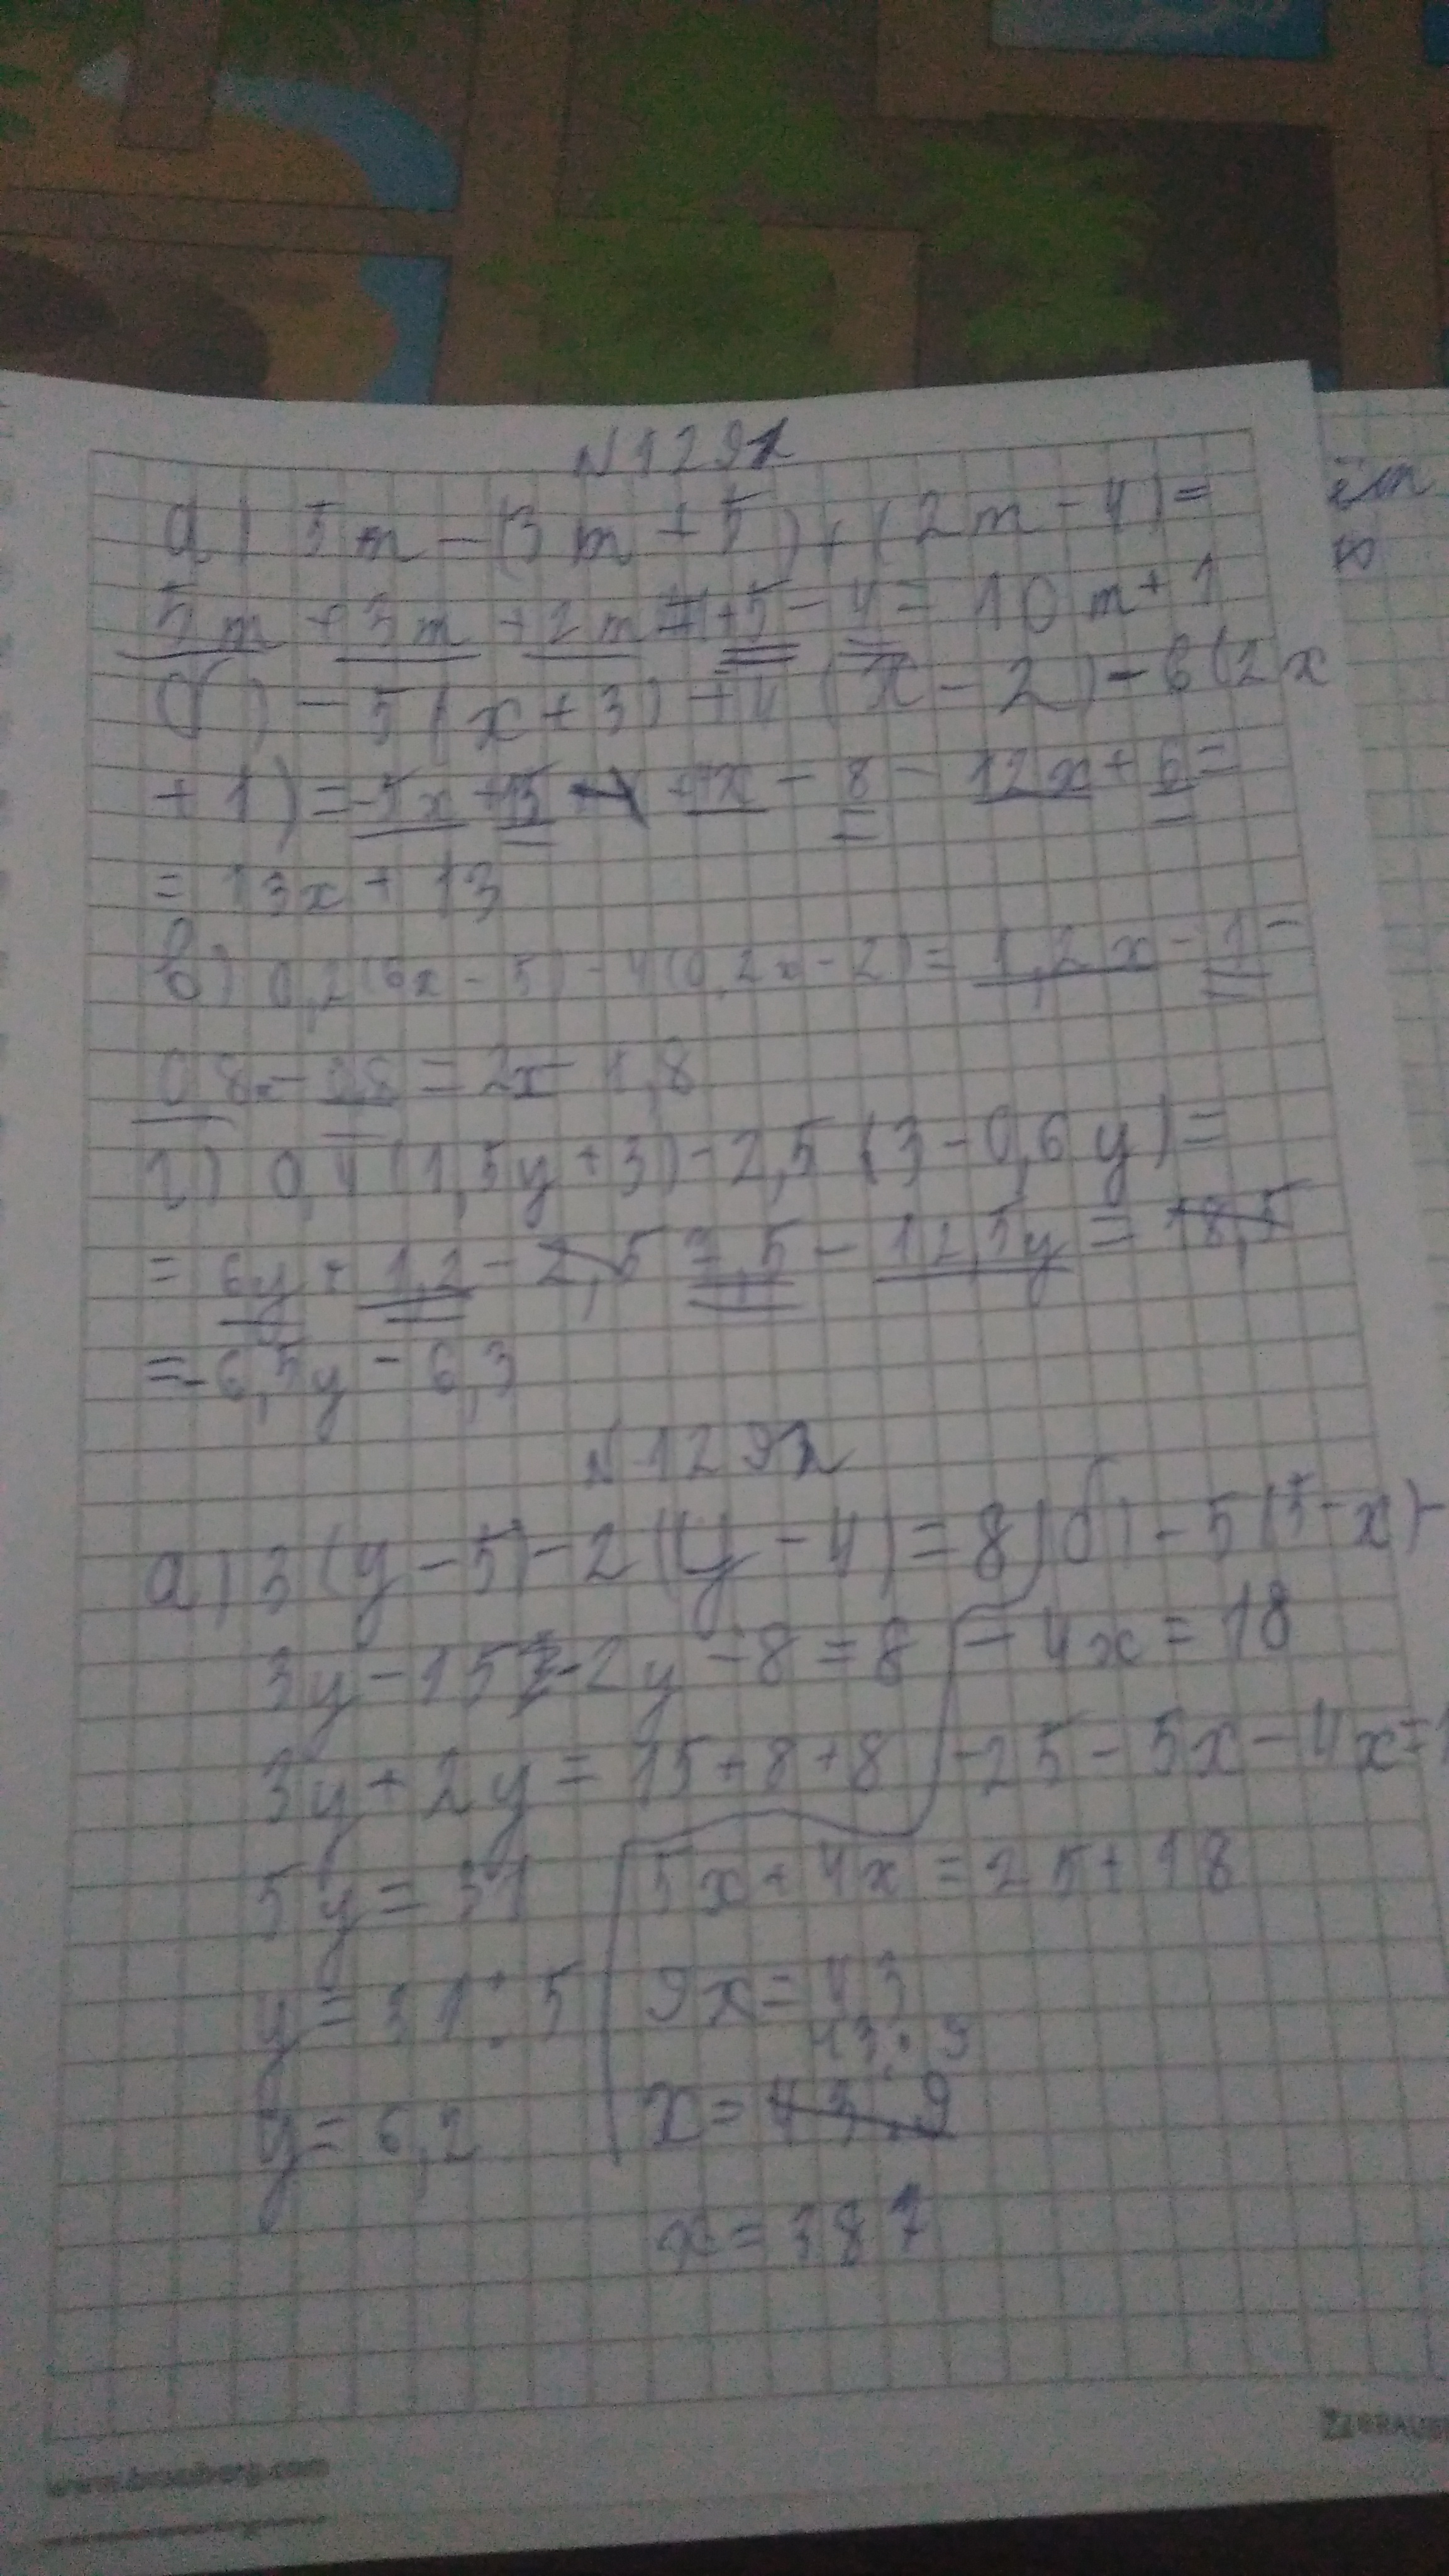 а) 5m-(3m+5)+(2m-4)=
5m+3m+2m+5-4=10m+1
б) -5(x+3)+4(x-2)-6(2x
+1)=-5x+15+4x-8-12x+6=
=13x+13
в) 0,2(6x-5)-4(0,2x-2)=1,2x-1-
0,8x-0,8=2x-1,8
г) 0,4(1,5y+3)-2,5(3-0,6y)=
=6y+1,2-2,5 7,5-12,5y=18,5
=-6,5y-6,3
а) 3(y-5)-2(y-4)=8
3y-15-2y-8=8
3y+2y=15+8+8
5y=31
y=31:5
y=6,2
б) -5(5-x)-
-4x=18
-25-5x-4x=1
5x+4x=25+18
9x=43
43:9
x=43:9
x=387